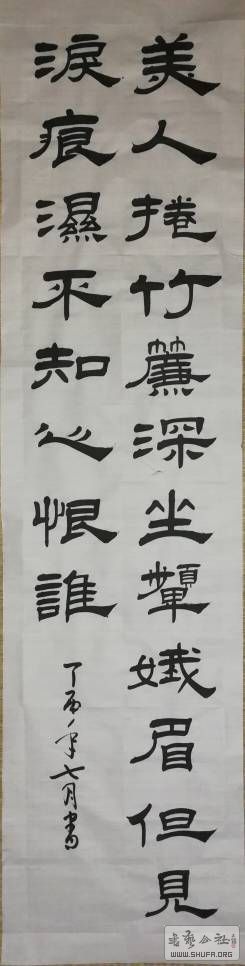 美人捲竹簾深坐顰娥眉但見
淚痕濕不知心恨誰
丁酉年七月書
WWW.SHUFA.ORG